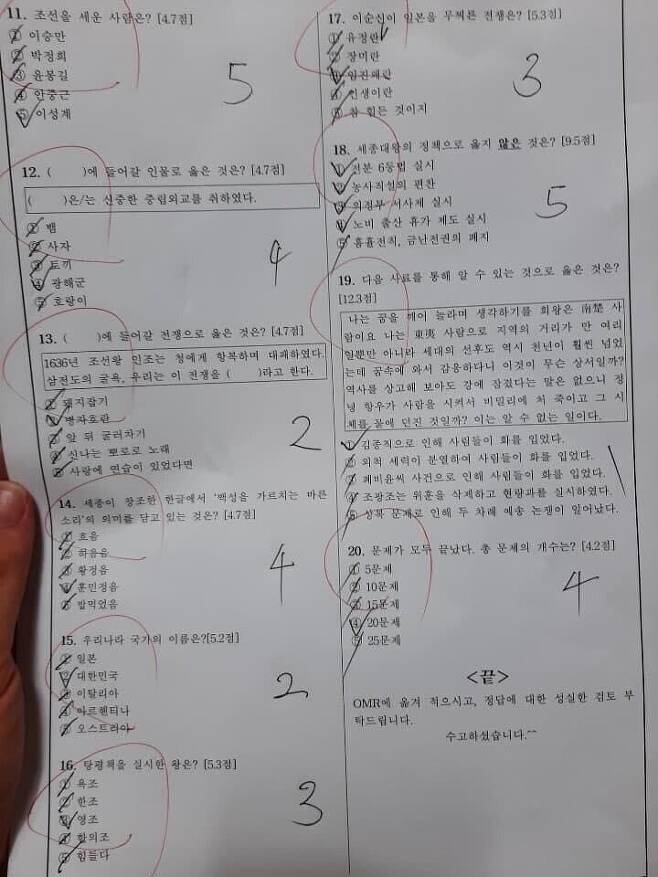 11. 조선을 세운 사람은? [4.7점]
① 이승만
② 박정희
③ 윤봉길
④ 안중근
⑤ 이성계
5
12. ( )에 들어갈 인물로 옳은 것은? [4.7점]
( )은/는 신중한 중립외교를 취하였다.
① 뱀
② 사자
③ 토끼
④ 광해군
⑤ 호랑이
4
13. ( )에 들어갈 전쟁으로 옳은 것은? [4.7점]
1636년 조선왕 인조는 청에게 항복하며 대패하였다.
삼전도의 굴욕, 우리는 이 전쟁을 ( )라고 한다.
① 돼지잡기
② 병자호란
③ 앞 뒤 굴러가기
④ 신나는 뽀로로 노래
⑤ 사랑에 연습이 있었다면
2
14. 세종이 창조한 한글에서 '백성을 가르치는 바른
소리'의 의미를 담고 있는 것은? [4.7점]
① 흐음
② 하음음
③ 황정음
④ 훈민정음
⑤ 밥먹었음
4
15. 우리나라 국가의 이름은?[5.2점]
① 일본
② 대한민국
③ 이탈리아
④ 아르헨티나
⑤ 오스트리아
2
16. 탕평책을 실시한 왕은? [5.3점]
① 욕조
② 한조
③ 영조
④ 합의조
⑤ 힘들다
3
17. 이순신이 일본을 무찌른 전쟁은? [5.3점]
① 유정란
② 장미란
③ 임진왜란
④ 인생이란
⑤ 참 힘든 것이지
3
18. 세종대왕의 정책으로 옳지 않은 것은? [9.5점]
① 전분 6등법 실시
② 농사직설의 편찬
③ 의정부 서사제 실시
④ 노비 출산 휴가 제도 실시
⑤ 흠휼전칙, 금난전권의 폐지
5
19. 다음 사료를 통해 알 수 있는 것으로 옳은 것은?
[12.3점]
나는 꿈을 깨어 놀라며 생각하기를 회왕은 南楚 사
람이요 나는 東夷 사람으로 지역의 거리가 만 여리
일뿐만 아니라 세대의 선후도 역시 천년이 훨씬 넘었
는데 꿈속에 와서 감응하다니 이것이 무슨 상서일까?
역사를 상고해 보아도 강에 잠겼다는 말은 없으니 정
녕 항우가 사람을 시켜서 비밀리에 쳐 죽이고 그 시
체를 물에 던진 것일까? 이는 알 수 없는 일이다.
① 김종직으로 인해 사림들이 화를 입었다.
② 외척 세력이 분열하여 사림들이 화를 입었다.
③ 폐비윤씨 사건으로 인해 사림들이 화를 입었다.
④ 조광조는 위훈을 삭제하고 현량과를 실시하였다.
⑤ 상복 문제로 인해 두 차례 예송 논쟁이 일어났다.
1
20. 문제가 모두 끝났다. 총 문제의 개수는? [4.2점]
① 5문제
② 10문제
③ 15문제
④ 20문제
⑤ 25문제
4
<끝>
OMR에 옮겨 적으시고, 정답에 대한 성실한 검토 부
탁드립니다.
수고하셨습니다.^^